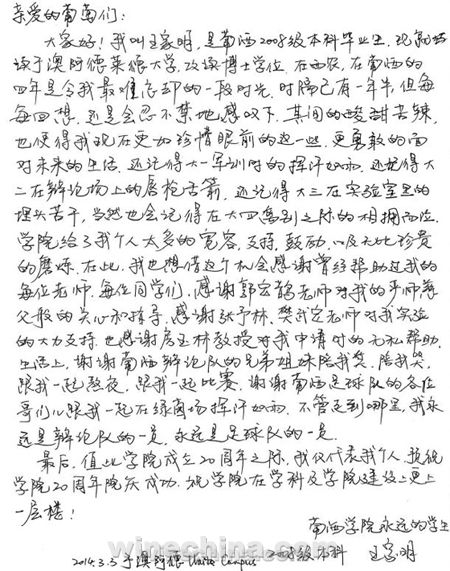 亲爱的葡萄们：
大家好！我叫王家明，是葡酒2008级本科毕业生，现就
读于澳阿德莱德大学，攻读博士学位，在西农，在葡酒的
四年是令我最难忘却的一段时光，时隔已有一年半，但每
每回想，还是会忍不禁地感叹下，其间的酸甜苦辣，
也使得我现在更加珍惜眼前的这一些，更勇敢的面
对未来的生活，还记得大一军训时的挥汗如雨，还记得大
二在辩论场上的唇枪舌箭，还记得大三在实验室里的
埋头苦干，当然也会记得在大四离别之际的相拥而泣，
学院给了我个人太多的宽容，支持，鼓励，以及无比珍贵
的磨练，在此，我也想借这个机会感谢曾经帮助过我的
每位老师，每位同学们，感谢郭安鹊老师对我的严师慈
父般的关心和指导，感谢张予林，樊玺老师对我实验
的大力支持，也感谢房玉林教授对我申请时的无私帮助，
生活上，谢谢葡酒辩论队的兄弟姐妹陪我哭，陪我笑，
跟我一起熬夜，跟我一起比赛，谢谢葡酒足球队的各位
哥们儿跟我一起在绿茵场挥汗如雨，不管走到哪里，我永
远是辩论队的一员，永远是足球队的一员
最后，值此学院成立20周年之际，我仅代表我个人，预祝
学院20周年院庆成功，祝学院在学科及学院建设上更上
一层楼！
葡酒学院永远的学生
2008级本科 王家明
2014.3.3于澳阿德 Waite Campus
www.winechina.com